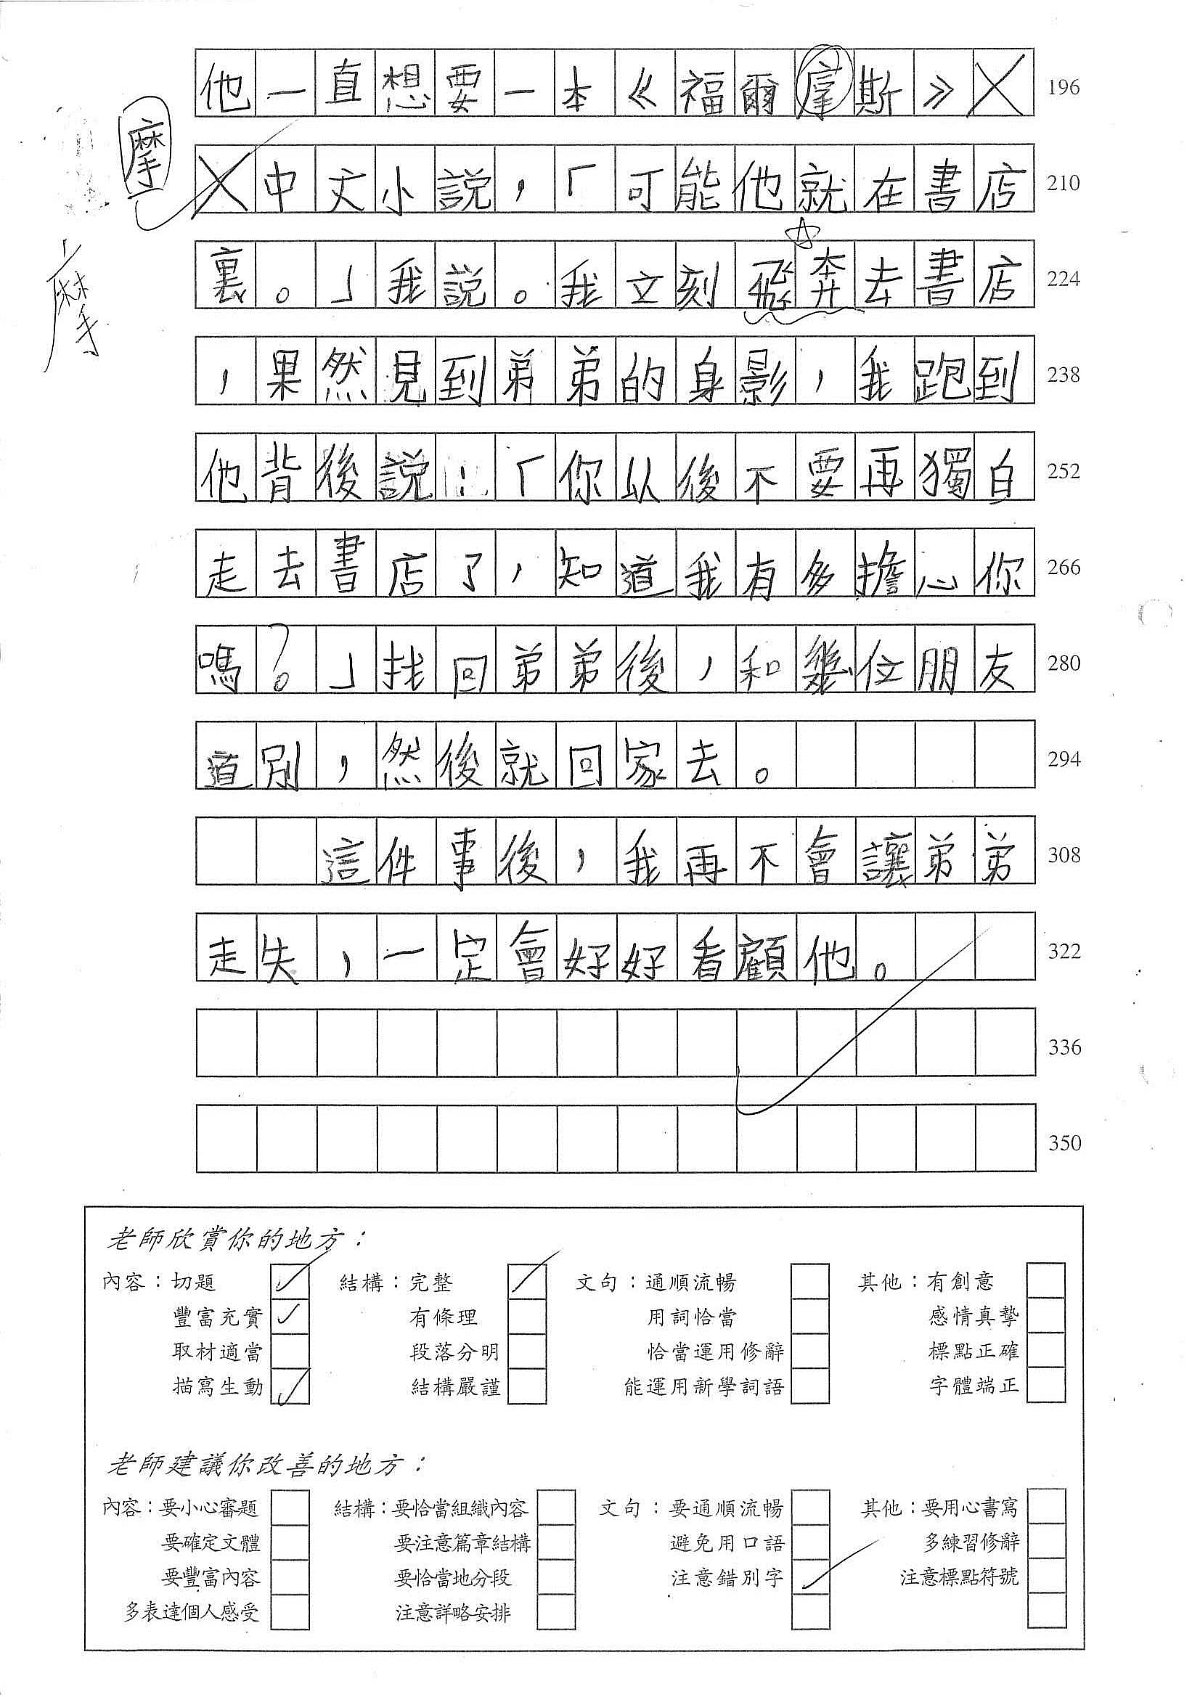 他一直想要一本《福爾摩斯》 196
摩
中文小說,「可能他就在書店 210
裏。」我說。我立刻飛奔去書店 224
摩
,果然見到弟弟的身影,我跑到 238
他背後說:「你以後不要再獨自 252
走去書店了,知道我有多擔心你 266
嗎?」找回弟弟後,和幾位朋友 280
道別,然後就回家去。 294
這件事後,我再不會讓弟弟 308
走失,一定會好好看顧他。 322
336
350
老師欣賞你的地方:
內容:切題 結構:完整 文句:通順流暢 其他:有創意
豐富充實 有條理 用詞恰當 感情真摯
取材適當 段落分明 恰當運用修辭 標點正確
描寫生動 結構嚴謹 能運用新學詞語 字體端正
老師建議你改善的地方:
內容:要小心審題 結構:要恰當組織內容 文句:要通順流暢 其他:要用心書寫
要確定文體 要注意篇章結構 避免用口語 多練習修辭
要豐富內容 要恰當地分段 注意錯別字 注意標點符號
多表達個人感受 注意詳略安排